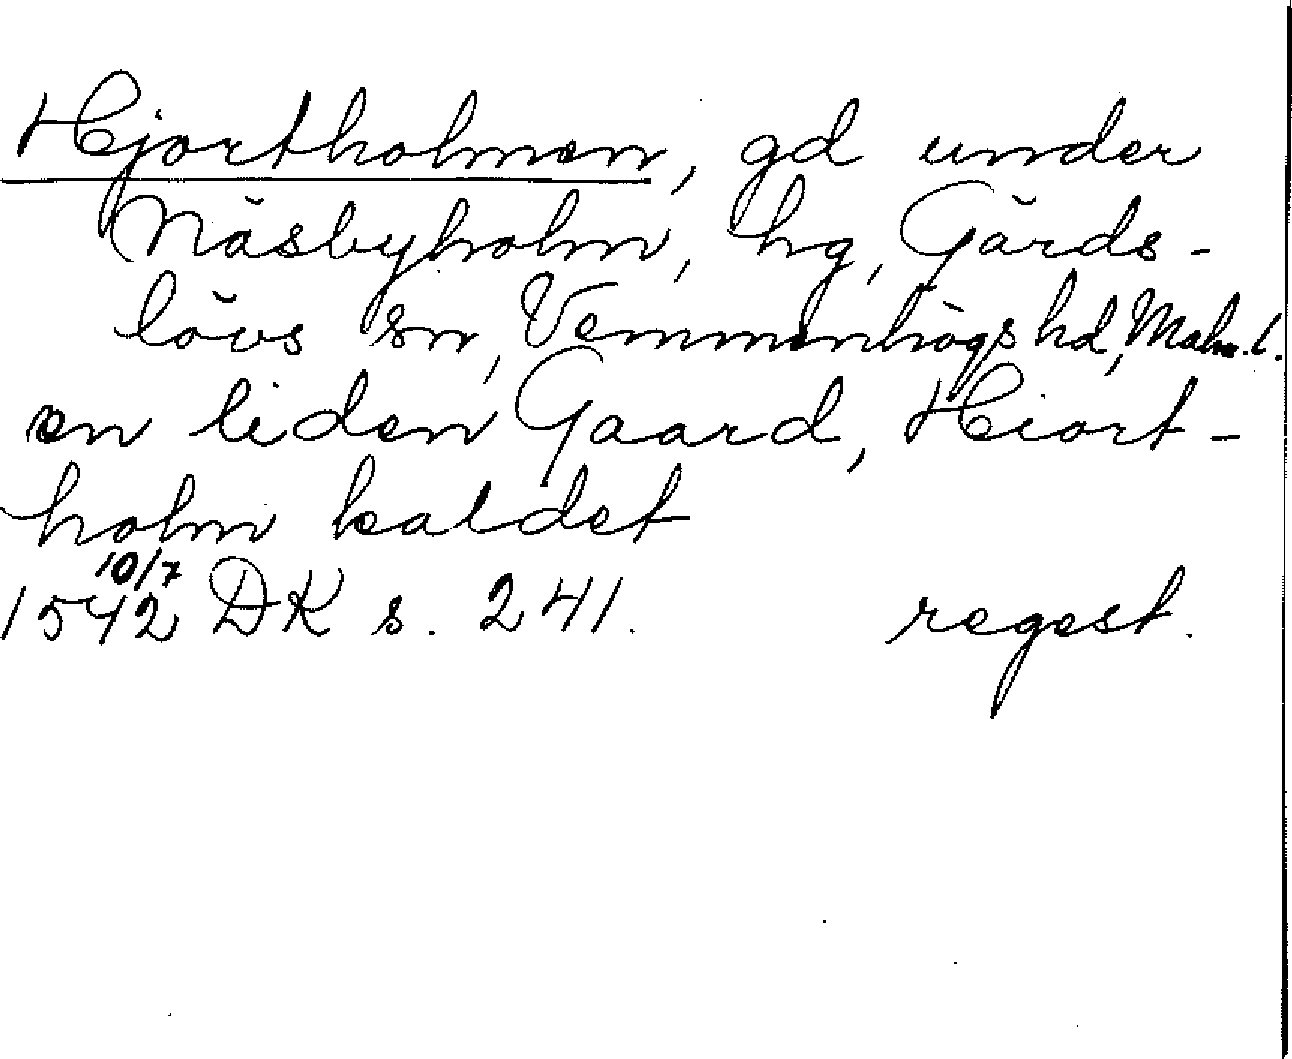 Hjortholmen, gd under
Näsbyholm, hg, Gärds-
lövs sn, Vemmenhögs hd, Malm. l.
en liden Gaard, Hiort-
holm kaldet
10/7
1542 DK s. 241. regest.